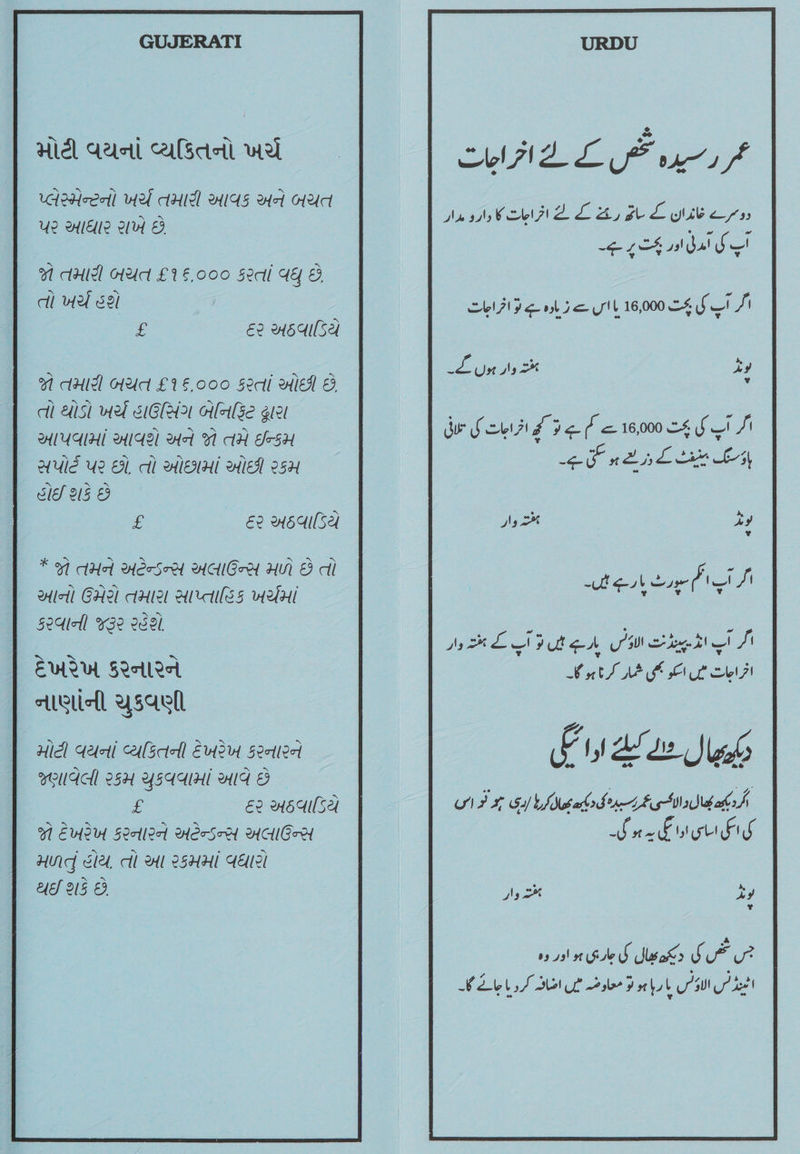 GUJERATI
મોટી વયનાં વ્યકિતનો ખર્ચ
પ્લેસ્મેન્ટનો ખર્ચ તમારી આવક અને બચત
પર આધાર રાખે છે.
જો તમારી બચત £૧૬,૦૦૦ કરતાં વધુ છે,
તો ખર્ચ હશે
£ દર અઠવાડિયે
જો તમારી બચત £૧૬,૦૦૦ કરતાં ઓછી છે,
તો થોડો ખર્ચ હાઉસિંગ બેનિફિટ દ્વારા
આપવામાં આવશે અને જો તમે ઈન્કમ
સપોર્ટ પર છો, તો ઓછામાં ઓછી રકમ
હોઈ શકે છે
£ દર અઠવાડિયે
* જો તમને અટેન્ડન્સ અલાઉન્સ મળે છે તો
આનો ઉમેરો તમારા સાપ્તાહિક ખર્ચમાં
કરવાની જરૂર રહેશે.
દેખરેખ કરનારને
નાણાંની ચુકવણી
મોટી વયનાં વ્યકિતની દેખરેખ કરનારને
જણાવેલી રકમ ચુકવવામાં આવે છે
£ દર અઠવાડિયે
જો દેખરેખ કરનારને અટેન્ડન્સ અલાઉન્સ
મળતું હોય, તો આ રકમમાં વધારો
થઈ શકે છે.
URDU
عمر رسیدہ شخص کے لئے اخراجات
دوسرے خاندان کے ساتھ رہنے کے لئے اخراجات کا دارو مدار
آپ کی آمدنی اور بچت پر ہے۔
اگر آپ کی بچت 16,000 یا اس سے زیادہ ہے تو اخراجات
پونڈ ہفتہ وار ہوں گے۔
اگر آپ کی بچت 16,000 سے کم ہے تو کچھ اخراجات کی تلافی
ہاؤسنگ بینیفٹ کے ذریعے ہو سکتی ہے۔
پونڈ ہفتہ وار
اگر آپ انکم سپورٹ پا رہے ہیں۔
اگر آپ پا رہے ہیں تو آپ کے ہفتہ وار
اخراجات میں اسکو بھی شمار کرنا ہو گا۔
دیکھ بھال والے کیلئے ادائیگی
اگر دیکھ بھال والا کسی عمر رسیدہ کی دیکھ بھال کر رہا / رہی ہو تو اس
کی اسکی اساسی ادائیگی یہ ہو گی۔
پونڈ ہفتہ وار
جس شخص کی دیکھ بھال کی جا رہی ہو اور وہ
اٹینڈنس الاؤنس پا رہا ہو تو معاوضہ میں اضافہ کر دیا جائے گا۔